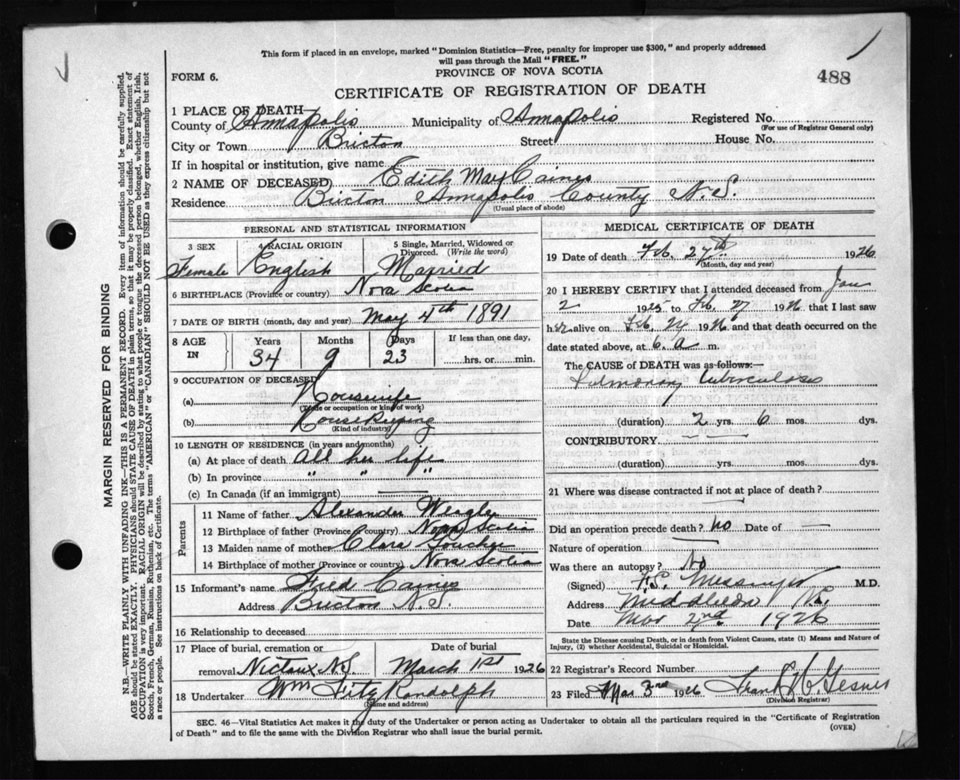 This form if placed in an envelope, marked "Dominion Statistics—Free, penalty for improper use $300," and properly addressed
will pass through the Mail "FREE."
PROVINCE OF NOVA SCOTIA
FORM 6.
488
CERTIFICATE OF REGISTRATION OF DEATH
1 PLACE OF DEATH
County of Annapolis Municipality of Annapolis Registered No.
(For use of Registrar General only)
City or Town Street House No.
If in hospital or institution, give name
2 NAME OF DECEASED Edith May Caines
Residence Annapolis County N.S.
(Usual place of abode)
PERSONAL AND STATISTICAL INFORMATION
3 SEX 4 RACIAL ORIGIN 5 Single, Married, Widowed or Divorced. (Write the word)
Female English Married
6 BIRTHPLACE (Province or country) Nova Scotia
7 DATE OF BIRTH (month, day and year) May 4th 1891
8 AGE IN Years Months Days If less than one day,
34 9 23 hrs. or min.
9 OCCUPATION OF DECEASED
(a) Housewife
(Trade or occupation or kind of work)
(b) Housekeeping
(Kind of industry)
10 LENGTH OF RESIDENCE (in years and months)
(a) At place of death all her life
(b) In province " " "
(c) In Canada (if an immigrant) —
Parents
11 Name of father Alexander
12 Birthplace of father (Province or country) Nova Scotia
13 Maiden name of mother Clara
14 Birthplace of mother (Province or country) Nova Scotia
15 Informant's name Fred Caines
Address N.S.
16 Relationship to deceased
17 Place of burial, cremation or removal Nictaux N.S. Date of burial March 1st 1926
18 Undertaker Wm Fitz Randolph
(Name and address)
MEDICAL CERTIFICATE OF DEATH
19 Date of death Feb. 27th 1926
(Month, day and year)
20 I HEREBY CERTIFY that I attended deceased from Jan
2 1925 to Feb. 27 1926 that I last saw
her alive on Feb. 27 1926 and that death occurred on the
date stated above, at 6 a m.
The CAUSE of DEATH was as follows:—
Pulmonary tuberculosis
(duration) 2 yrs. 6 mos. dys.
CONTRIBUTORY
(duration) yrs. mos. dys.
21 Where was disease contracted if not at place of death?
Did an operation precede death? no Date of —
Nature of operation —
Was there an autopsy? No
(Signed) F.S. Messenger M.D.
Address Middleton N.S.
Date Mar 2nd 1926
State the Disease causing Death, or in death from Violent Causes, state (1) Means and Nature of
Injury, (2) whether Accidental, Suicidal or Homicidal.
22 Registrar's Record Number
23 Filed Mar 3rd 1926 Frank
(Division Registrar)
SEC. 46—Vital Statistics Act makes it the duty of the Undertaker or person acting as Undertaker to obtain all the particulars required in the "Certificate of Registration
of Death" and to file the same with the Division Registrar who shall issue the burial permit.
(OVER)
MARGIN RESERVED FOR BINDING
N.B.—WRITE PLAINLY WITH UNFADING INK—THIS IS A PERMANENT RECORD. Every item of information should be carefully supplied.
AGE should be stated EXACTLY. PHYSICIANS should STATE CAUSE OF DEATH in plain terms, so that it may be properly classified. Exact statement of
OCCUPATION is very important. RACIAL ORIGIN will be described by stating to what people or tongue the deceased person belonged, whether English, Irish,
Scotch, French, German, Russian, Ruthenian, etc. The terms "AMERICAN" or "CANADIAN" SHOULD NOT BE USED as they express citizenship but not
a race or people. See instructions on back of Certificate.